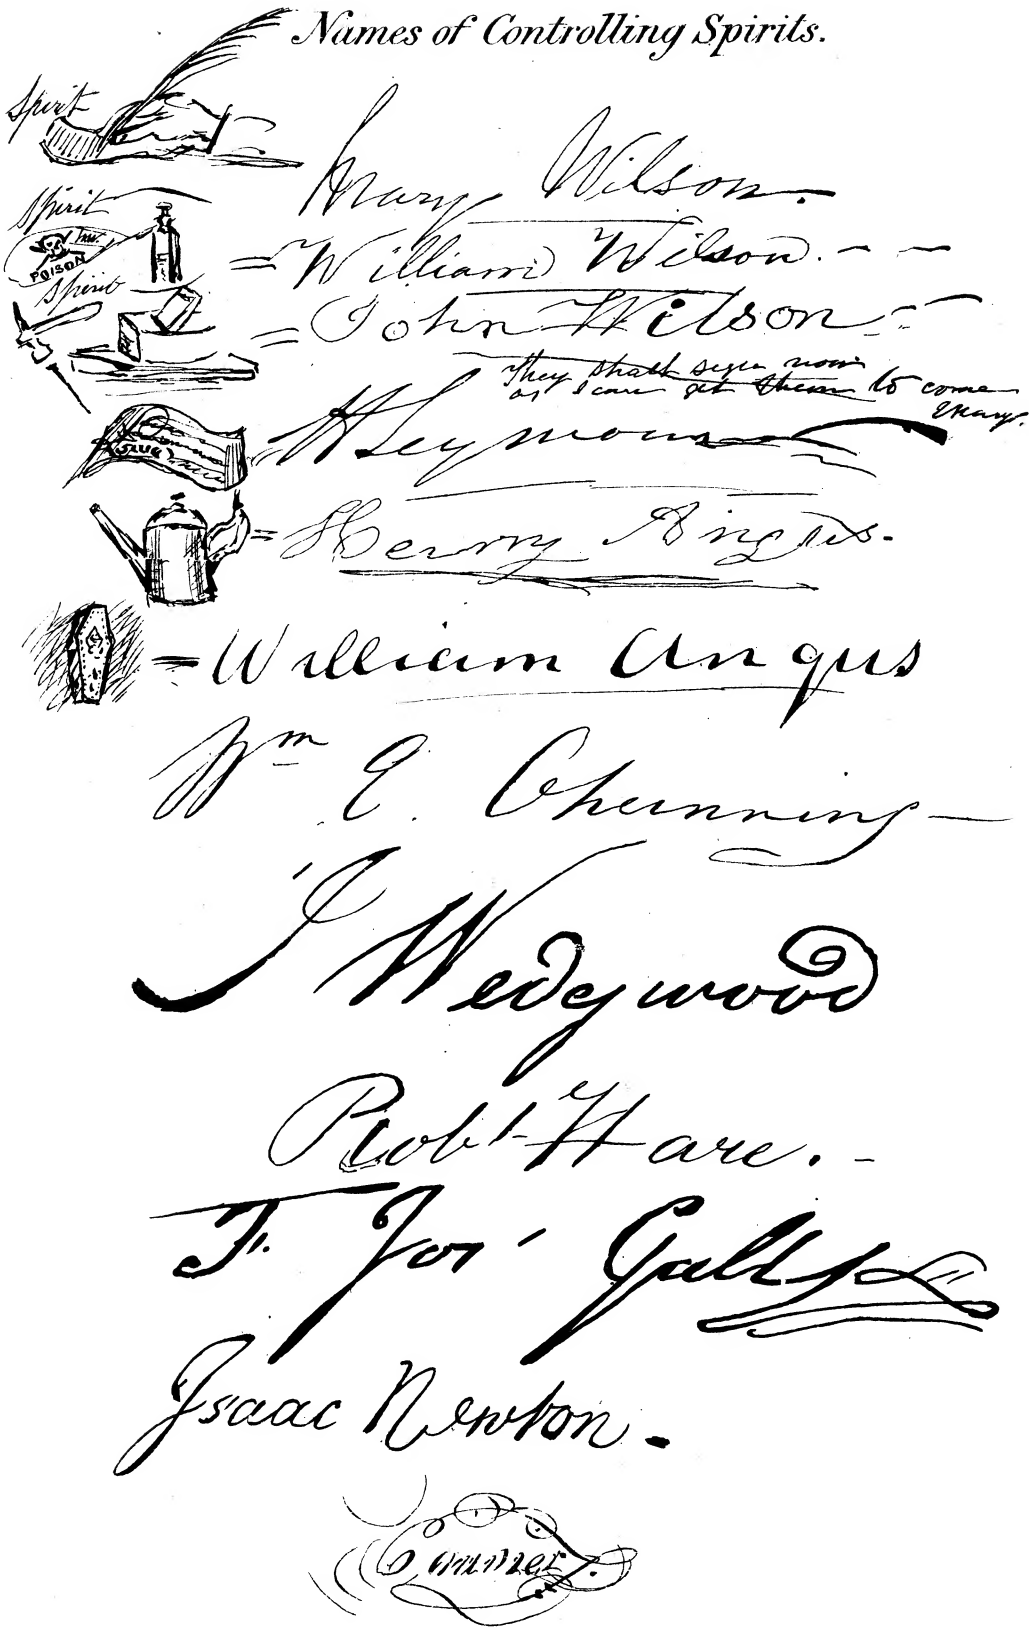 Names of Controlling Spirits.
Spirit
Mary Wilson.
Spirit
POISON
= William Wilson. - -
Spirit
= John Wilson -
They shall sign now
as I can get them to come
Mary.
H Seymour
= Henry Angus.
= William Angus
Wm E. Channing -
J Wedgwood
Robt Hare. -
F. Jos' Gall
Isaac Newton.